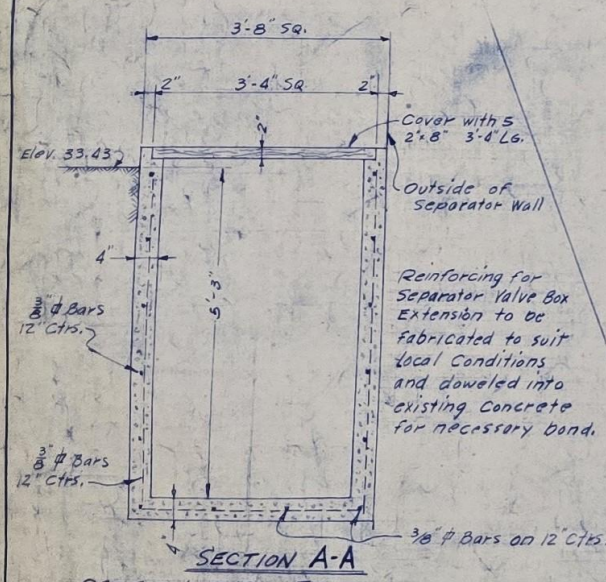 3'-8" SQ.
2" 3'-4" SQ. 2"
2"
Cover with 5
2"x8" 3'-4" LG.
Elev. 33.43
Outside of
Separator Wall
4"
5'-3"
Reinforcing for
Separator Valve Box
Extension to be
fabricated to suit
local Conditions
and doweled into
existing Concrete
for necessary bond.
3/8" ⌀ Bars
12" Ctrs.
3/8" ⌀ Bars
12" Ctrs.
3/8" ⌀ Bars on 12" Ctrs
4"
SECTION A-A